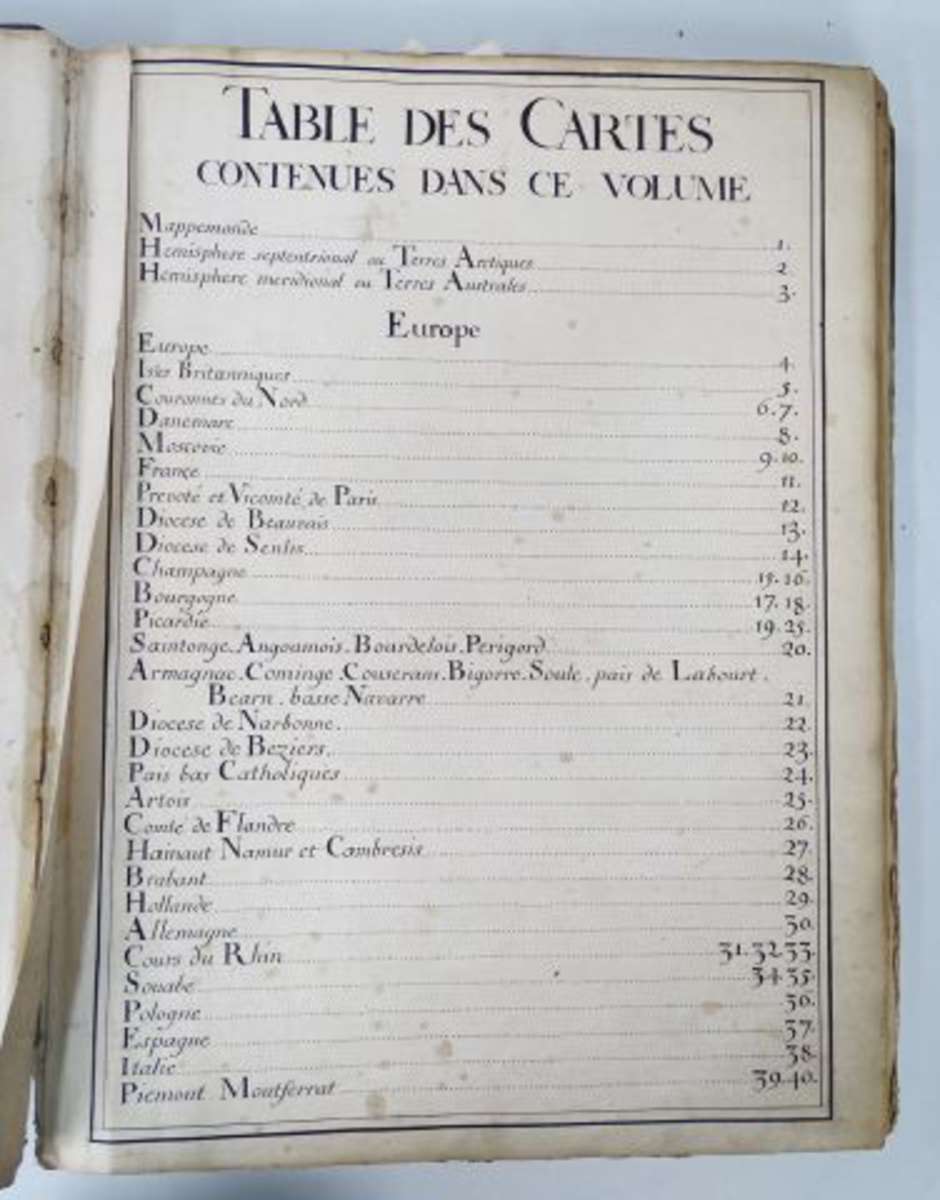 TABLE DES CARTES
CONTENUES DANS CE VOLUME
Mappemonde 1.
Hemisphere septentrional ou Terres Arctiques 2
Hemisphere meridional ou Terres Australes 3.
Europe
Europe 4.
Isles Britanniques 5.
Couronnes du Nord 6.7.
Danemarc 8.
Moscovie 9.10.
France 11.
Prevoté et Vicomté de Paris 12.
Diocese de Beauvais 13.
Diocese de Senlis 14.
Champagne 15.16.
Bourgogne 17.18.
Picardie 19.25.
Saintonge.Angoumois.Bourdelois.Perigord 20.
Armagnac.Cominge.Couserans.Bigorre.Soule.pais de Labourt.
Bearn.basse Navarre 21.
Diocese de Narbonne 22.
Diocese de Beziers 23.
Pais bas Catholiques 24.
Artois 25.
Comté de Flandre 26.
Hainaut Namur et Cambresis 27.
Brabant 28.
Hollande 29.
Allemagne 30.
Cours du Rhin 31.32.33.
Souabe 34.35.
Pologne 36.
Espagne 37.
Italie 38.
Piemont Montferrat 39.40.